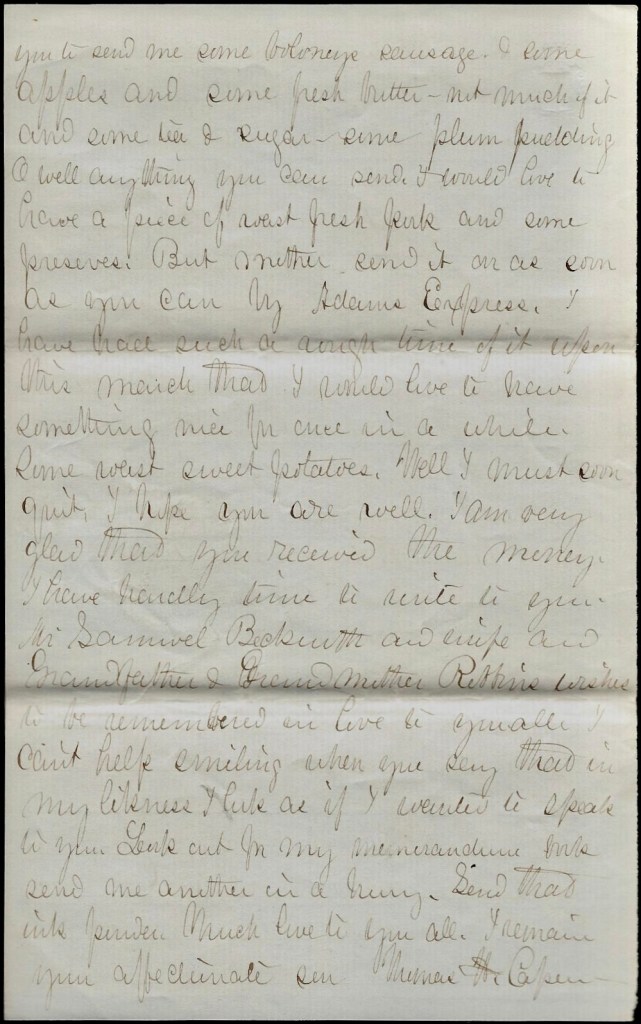 you to send me some boloneys sausage. & some
apples and some fresh butter - not much of it
and some tea & sugar - some plum pudding
O well anything you can send. I would love to
have a piece of roast fresh pork and some
preseves. But mother send it on as soon
as you can by Adams Express. I
have had such a rough time of it upon
this march that I would love to have
something nice for once in a while.
Some roast sweet potatoes. Well I must soon
quit. I hope you are well. I am very
glad that you received the money.
I have hardly time to write to you.
Mr Samuel Beckwith and wife and
Grandfather & Grandmother Robbins wishes
to be remembered in love to you all. I
can't help smiling when you say that in
my likness I look as if I wanted to speak
to you. Look out for my memorandum book
send me another in a hurry. Send that
ink powder. Much love to you all. I remain
your affectionate son Thomas H. Capen